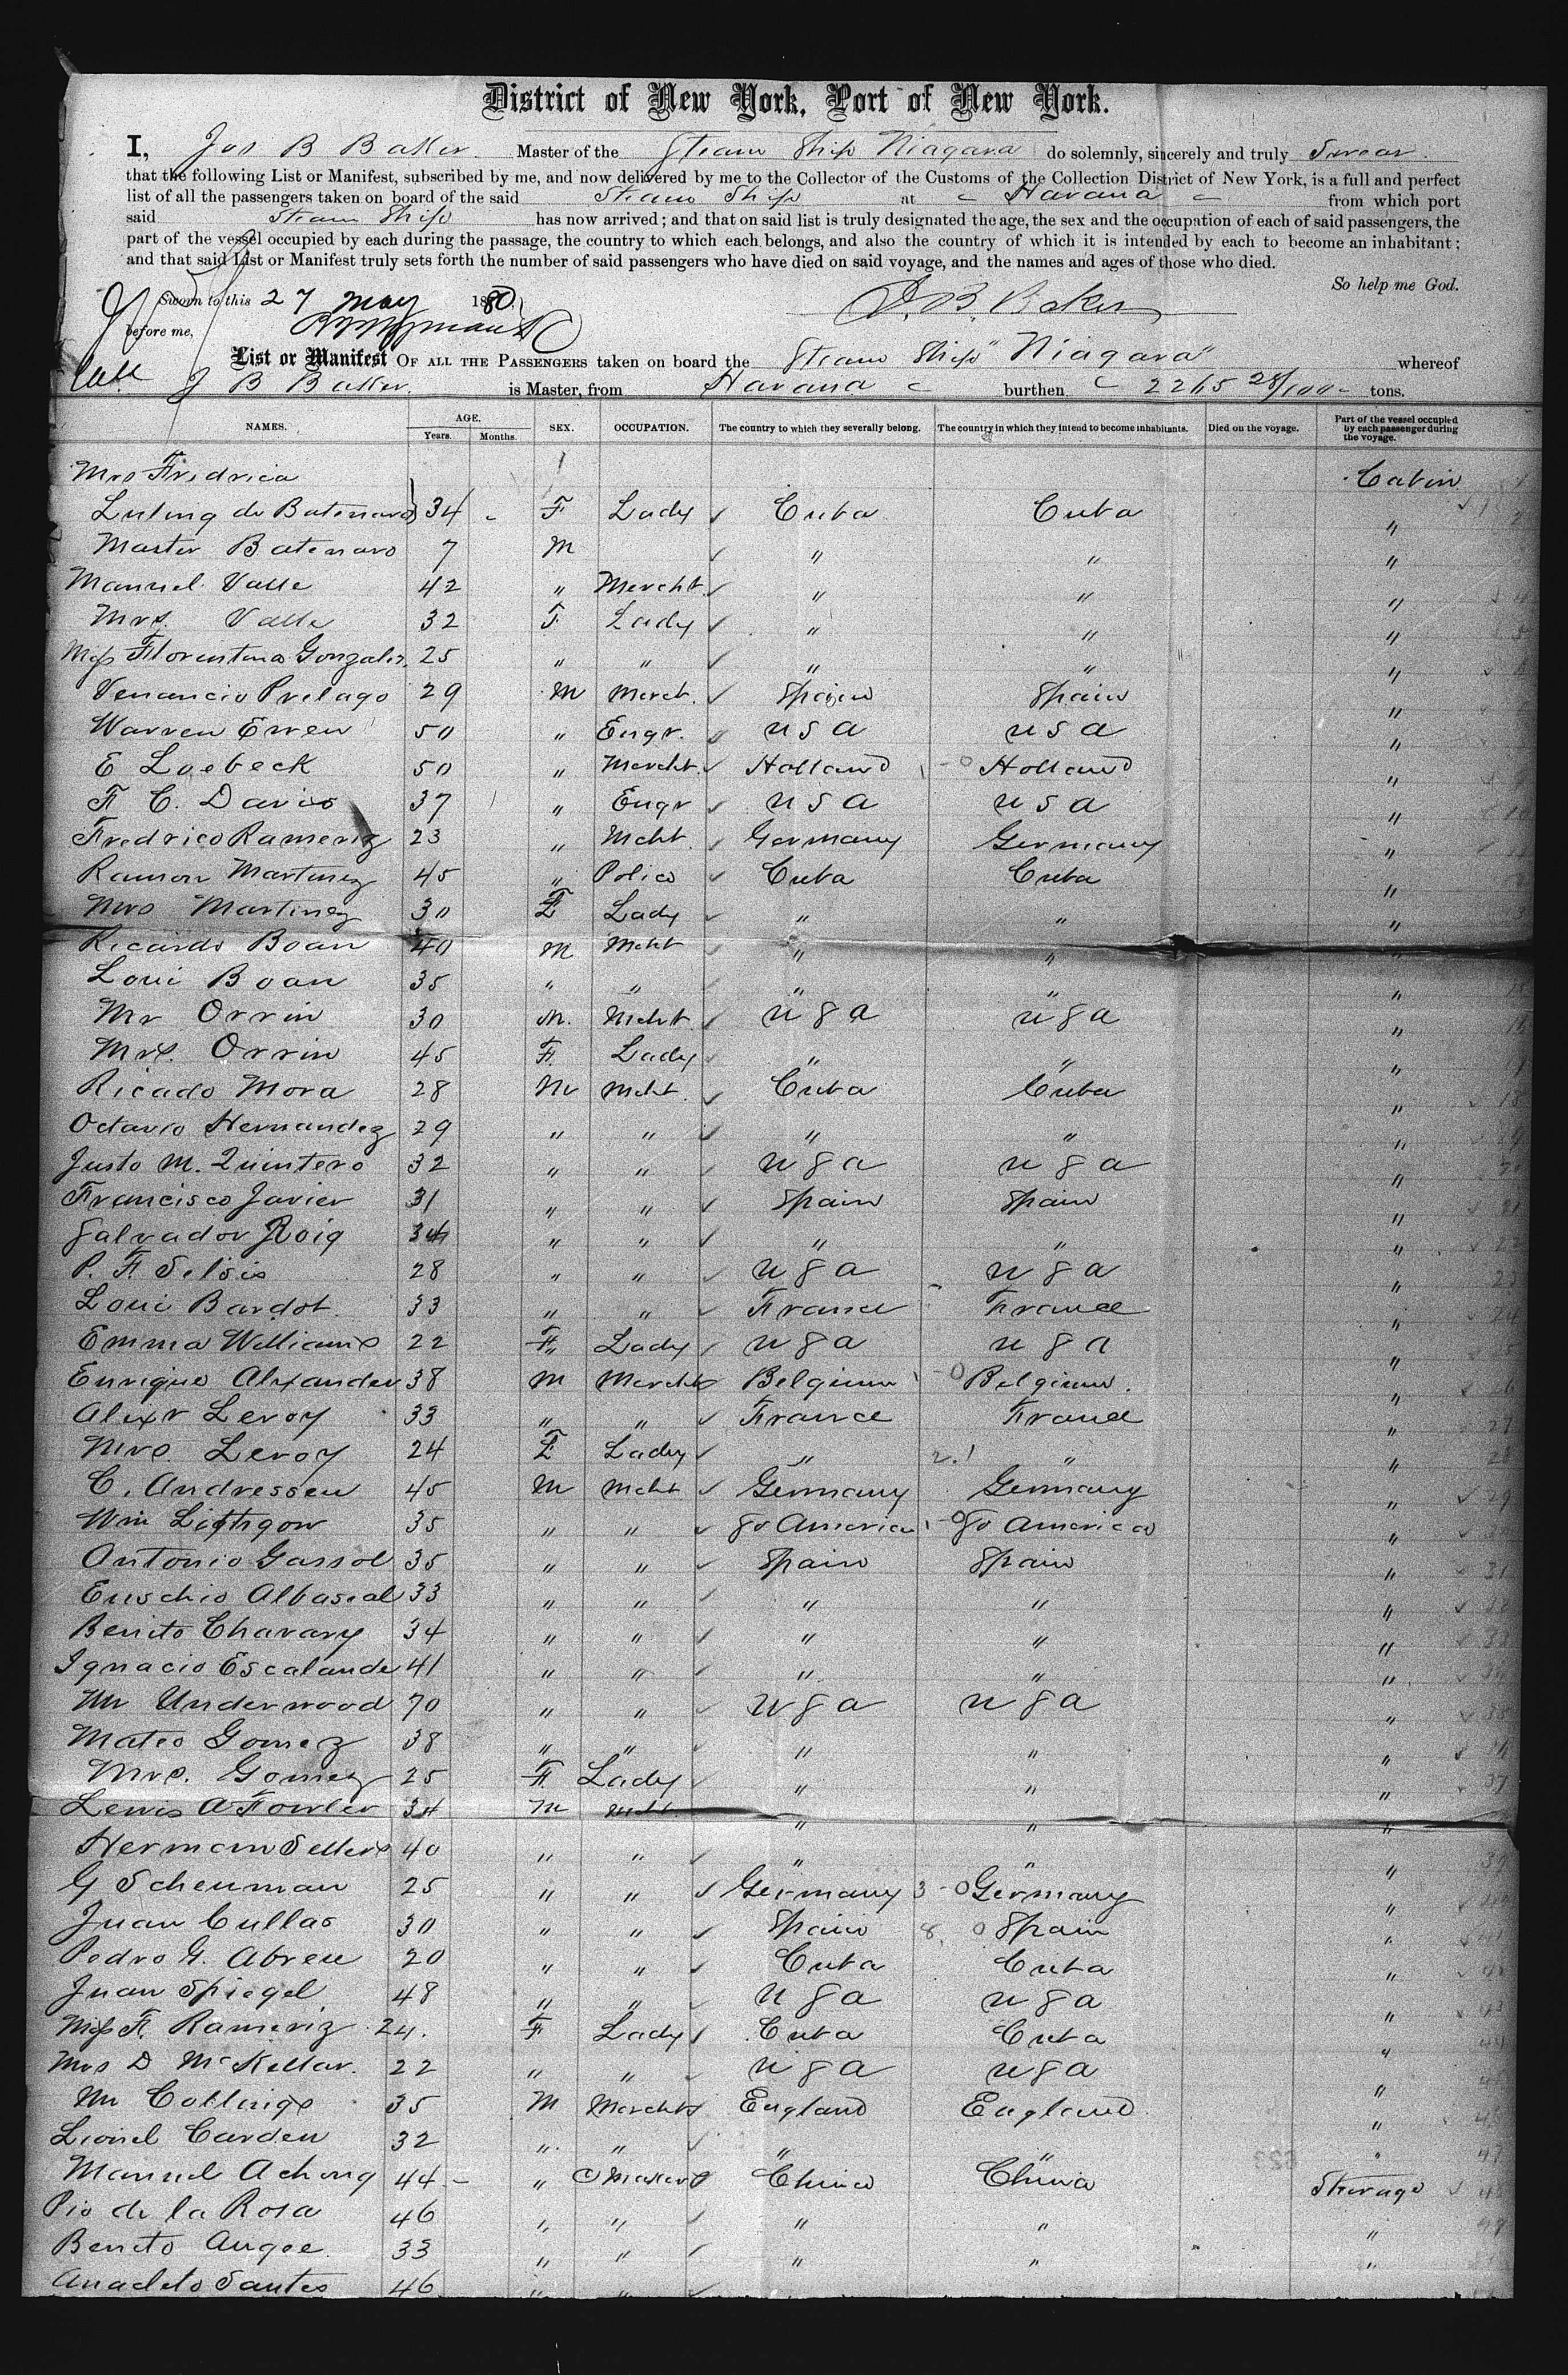 District of New York, Port of New York.
I, Jos B Baker Master of the Steam Ship Niagara do solemnly, sincerely and truly Swear
that the following List or Manifest, subscribed by me, and now delivered by me to the Collector of the Customs of the Collection District of New York, is a full and perfect
list of all the passengers taken on board of the said Steam Ship at Havana from which port
said Steam Ship has now arrived; and that on said list is truly designated the age, the sex and the occupation of each of said passengers, the
part of the vessel occupied by each during the passage, the country to which each belongs, and also the country of which it is intended by each to become an inhabitant;
and that said List or Manifest truly sets forth the number of said passengers who have died on said voyage, and the names and ages of those who died.
So help me God.
Sworn to this 27 May 1880
J. B. Baker
before me,
List or Manifest OF ALL THE PASSENGERS taken on board the Steam Ship "Niagara" whereof
J B Baker. is Master, from Havana burthen 2265 28/100 tons.
NAMES. AGE. Years. Months. SEX. OCCUPATION. The country to which they severally belong. The country in which they intend to become inhabitants. Died on the voyage. Part of the vessel occupied by each passenger during the voyage.
Mrs Fredrica Cabin
Luling de 34 F Lady Cuba Cuba "
Master 7 M " " "
Manuel Valle 42 " Mercht. " " "
Mrs. Valle 32 F Lady " " "
Miss Florentina Gonzalez 25 " " " " "
Venancio Prelago 29 M Merct. Spain Spain "
Warren Erren 50 " Engr. U S A U S A "
E Loebeck 50 " Mercht. Holland Holland "
F C. Davis 37 " Engr U S A U S A "
Fredrico Rameriz 23 " Mcht. Germany Germany "
Ramon Martinez 45 " Police Cuba Cuba "
Mrs Martinez 30 F Lady " " "
Ricardo Boan 40 M Mcht " " "
Loui Boan 35 " " " " "
Mr Orrin 30 M. Mcht U S A U S A "
Mrs. Orrin 45 F. Lady " " "
Ricado Mora 28 M Mcht. Cuba Cuba "
Octavio Hernandez 29 " " " " "
Justo M. Quintero 32 " " U S A U S A "
Francisco Javier 31 " " Spain Spain "
Salvador Roig 34 " " " " "
P. F. Selsis 28 " " U S A U S A "
Loui Bardot 33 " " France France "
Emma Williams 22 F Lady U S A U S A "
Enrique Alexander 38 M Mercht Belgium Belgium. "
Alexr Leroy 33 " " France France "
Mrs. Leroy 24 F Lady " " "
C. Andressen 45 M Mcht Germany Germany "
Wm Lithgow 35 " " So America So America "
Antonio Gassol 35 " " Spain Spain "
Euschio Albasial 33 " " " " "
Benito Chavary 34 " " " " "
Ignacio Escalande 41 " " " " "
Mr Underwood 70 " " U S A U S A "
Mateo Gomez 38 " " " " "
Mrs. Gomez 25 F Lady " " "
Lewis A Fowler 34 M Mcht " " "
Herman Sellers 40 " " " " "
G Scheuman 25 " " Germany 3 Germany "
Juan Cullas 30 " " Spain 8 Spain "
Pedro G. Abreu 20 " " Cuba Cuba "
Juan Spiegel 48 " " U S A U S A "
Miss F. Rameriz 24. F Lady Cuba Cuba "
Mrs D McKellar. 22 " " U S A U S A "
Mr Collings 35 M Mercht England England "
Lionel Carden 32 " " " " "
Manuel Achong 44 " China China Steerage
Pio de la Rosa 46 " " " " "
Benito Angee 33 " " " " "
Anacleto Santes 46 " "